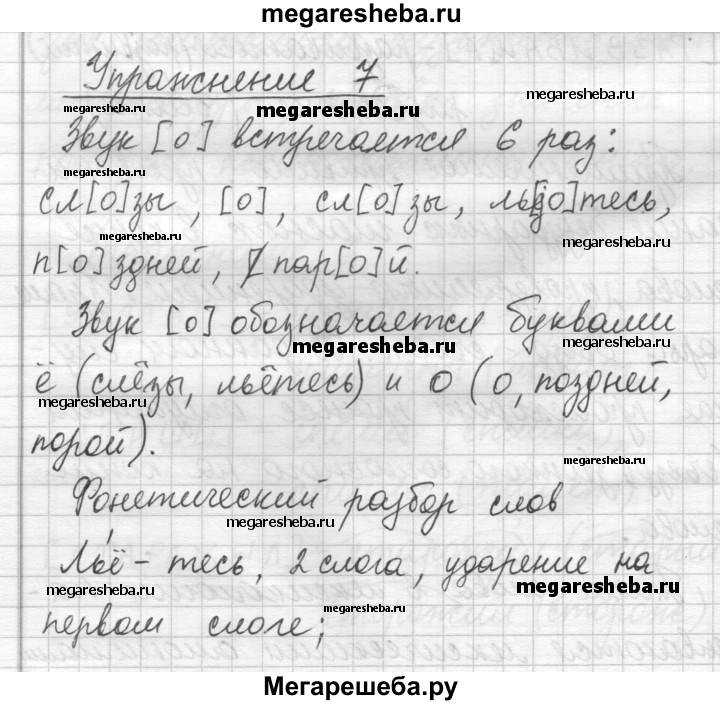 megaresheba.ru
Упражнение 7
megaresheba.ru megaresheba.ru megaresheba.ru
Звук [о] встречается 6 раз:
сл[о]зы, [о], сл[о]зы, ль[йо]тесь,
megaresheba.ru megaresheba.ru
п[о]здней, пар[о]й.
Звук [о] обозначается буквами
megaresheba.ru megaresheba.ru
ё (слёзы, льётесь) и о (о, поздней,
megaresheba.ru
порой).
megaresheba.ru
Фонетический разбор слов
megaresheba.ru
Льё - тесь, 2 слога, ударение на
megaresheba.ru megaresheba.ru
megaresheba.ru
первом слоге;
Мегарешеба.ру